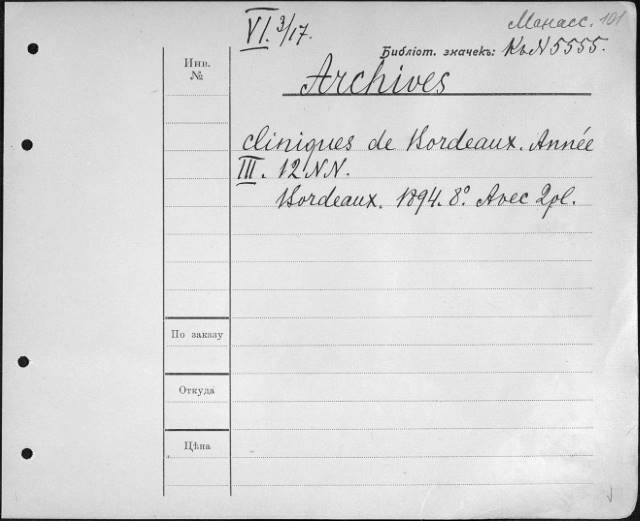 VI. 3/17.
Манасс. 101
Библіот. значекъ: Къ N 5555.
Инв.
№
Archives
cliniques de Bordeaux. Année
III. 12 NN.
Bordeaux. 1894. 8º. Avec 2 pl.
По заказу
Откуда
Цѣна